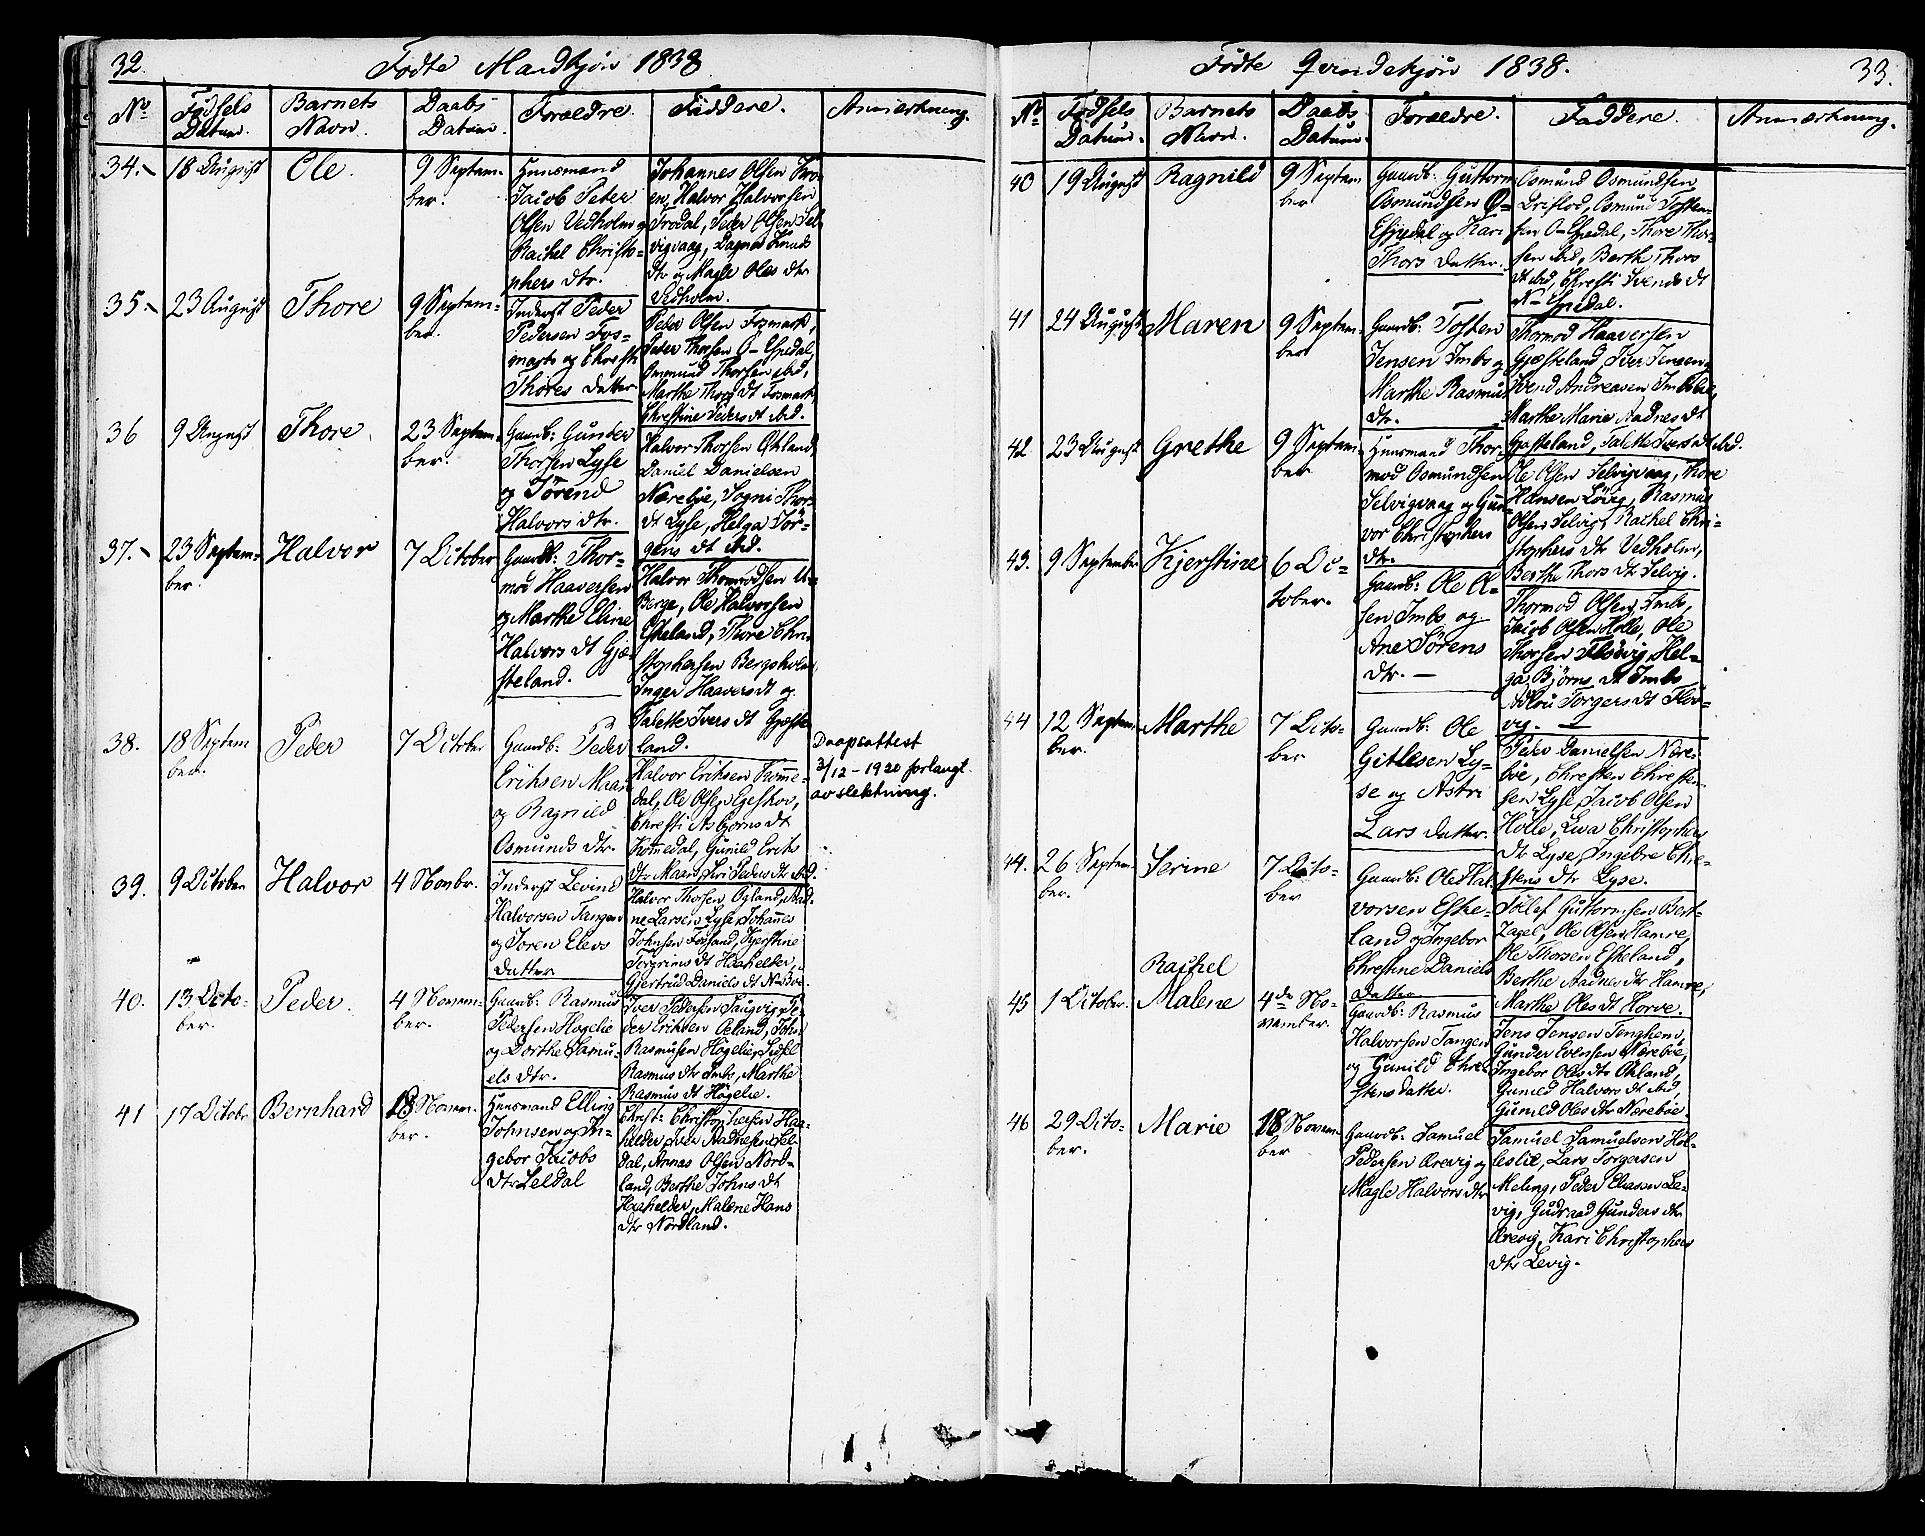 32.
Fødte Mandkjøn 1838
No
Fødsels
Datum.
Barnets
Navn.
Daabs
Datum.
Foræeldre.
Faddere.
Anmærkning.
34.
18 August
Ole.
9 Septem-
ber.
Huusmand
Jacob Peter
Olsen Vedholm og
Rachel Christo-
phers dtr.
Johannes Olsen
en, Halvor Halvorsen
Frodal, Peder Olsen Sel-
vigvaag, Dagne Knuds
dtr og Magle Oles dtr
Vedholm.
35.
23 August
Thore
9 Septem-
ber.
Inderst Peder
Pedersen Fos-
mark og Christi
Thores datter
Peder Olsen Fosmark,
Peder Thorsen O-Espedal,
Ommund Thorsen ibid,
Marthe Thors dt Fosmark
Christine Peders dt ibid.
36
9 August
Thore.
23 Septem-
ber.
Gaardb: Gunder
Thorsen Lyse
og Sørend
Halvors dtr.
Halvor Thorsen
Daniel Danielsen
Nærebøe, Sogni Thor-
dt Lyse, Helga Tør-
gens dt ibid.
37.
23 Septem-
ber.
Halvor
7 October
Gaardb: Thor-
mod Haaversen
og Marthe Eline
Halvors dt Gjæ-
steland.
Halvor Thormodsen
Berge, Ole Halvorsen
Eskeland, Thore Chri-
stophersen Bergsholm,
Inger Haavers dt og
Talette Ivers dt Gjæste-
land.
38.
18 Septem
ber.
Peder
7 October
Gaardb: Peder
Eriksen Maan
og Ragnild
Osmunds dtr.
Halvor Eriksen
dal, Ole Olsen Egeskov,
Christi Asbjørns dt
Gunild Eriks
dtr Maan, Siri Peders dtr ibid.
Daapsattest
3/12-1920 forlangt
av slektning.
39.
9 October
Halvor
4 Novbr.
Inderst Levind
Halvorsen Tangen
og Soren Elevs
datter
Halvor Thorsen Ogland, Aad-
ne Larsen Lyse, Johannes
Johnsen Fossand, Kjerstine
Torgrims dt Haahelter,
Gjertrud Daniels dt N-Bøe.
40.
13 Octo-
ber.
Peder.
4 Novem-
ber.
Gaardb: Rasmus
Pedersen Høgelie
og Dorthe Samu-
els dtr.
Iver Pedersen Saugvig, Pe-
der Eriksen John
Rasmusen Høgelie, Sidsel
Rasmus dtr Imbs, Marthe
Rasmus dt Høgelie.
41
17 Octobr
Bernhard
18 Novem-
ber.
Huusmand Elling
Johnsen og In-
gebor Jacobs
dtr Leldal
Christ: Christophersen Haa-
helder, Iver Aadnesen Lel-
dal, Annas Olsen Nord-
land, Berthe Johns dt
Haahelder, Malene Hans
dtr Nordland.
33.
Fødte Qvindekjøn 1838.
No
Fødsels
Datum.
Barnets
Navn.
Daabs
Datum.
Foræeldre.
Faddere.
Anmærkning.
40
19 August
Ragnild
9 Septem
ber
Gaardb: Guttorm
Osmundsen O-
Espedal og Kari
Thors datter.
Osmund Osmundsen
Osmund Tosten-
sen O-Espedal, Thore Thor-
sen ibid, Berthe Thors
dt ibid, Christi Svends dt
N-Espedal.
41
24 August
Maren
9 Septem-
ber
Gaardb: Tosten
Jensen Imbs og
Marthe Rasmus
dtr.
Thormod Haaversen
Gjæsteland, Iver Jensen,
Svend Andreasen
Marthe Marie Aadnes dt
Gjæsteland, Talette Ivers dt ibid.
42
23 August
Grethe
9 Septem-
ber
Huusmand Thor-
mod Osmundsen
Selvigvaag og Gun-
vor Christophers
dtr.
Ole Olsen Selvigvaag, Thore
Hansen Løvig, Rasmus
Olsen Selvig, Rachel Chri-
stophers dtr Vedholm,
Berthe Thors dtr Selvig.
43.
9 September
Kjerstine
6 Oc-
tober.
Gaardb: Ole Ol-
sen Imbs og
Ane Sørens
dtr.-
Thormod Olsen Imbs,
Jacob Olsen Holle, Ole
Thorsen Fløvig, Hel-
ga Bjørns dt Imbs
Torgers dt Flør-
vig.
44
12 Septem-
ber.
Marthe
7 Octo-
ber
Gaardb: Ole
Gitlesen Ly-
se og Astri
Lars datter.
Peder Danielsen Nære-
bøe, Christen Christen-
sen Lyse, Jacob Olsen
Holle, Lisa Christophers
dtr Lyse, Ingebre Chri-
stens dtr Lyse.
44.
26 Septem-
ber.
Serine
7 Octo-
ber
Gaardb: Ole Hal-
vorsen Eske-
land og Ingebor
Christine Daniels
datter
Tollef Guttormsen Bert-
zagel, Ole Olsen Hamre,
Ole Thorsen Eskeland,
Berthe Aadnes dtr Hamre,
Marthe Oles dt Horve.
45
1 October.
Rachel
Malene
4de No-
vember.
Gaardb: Rasmus
Halvorsen Tangen
og Gunild Chri-
stens datter.
Jens Jensen Tenghem,
Gunder Evensen Nærebøe,
Ingebor Oles dtr Okland,
Gunild Halvors dt ibid,
Gunild Oles dtr Nærebøe.
46
29 Octo-
ber.
Marie
18 Novem
ber
Gaardb: Samuel
Pedersen Ørevig og
Magle Halvors dtr
Samuel Samuelsen Hol-
leslie, Lars Torgersen
Meling, Peder Eliassen Le-
vig, Gudraad Gunders dtr
Ørevig, Kari Christophers
dtr Levig.